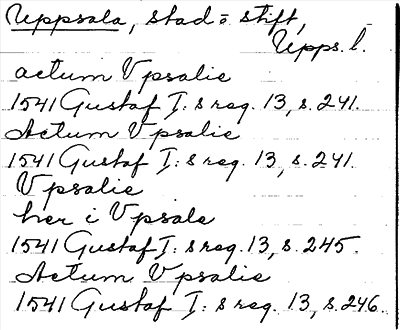 Uppsala, stad o stift,
Upps. l.
actum Vpsalie
1541 Gustaf I:s reg. 13, s. 241.
Actum Vpsalie
1541 Gustaf I:s reg. 13, s. 241.
Vpsalie
her i Vpsale
1541 Gustaf I:s reg. 13, s. 245.
Actum Vpsalie
1541 Gustaf I:s reg. 13, s. 246.